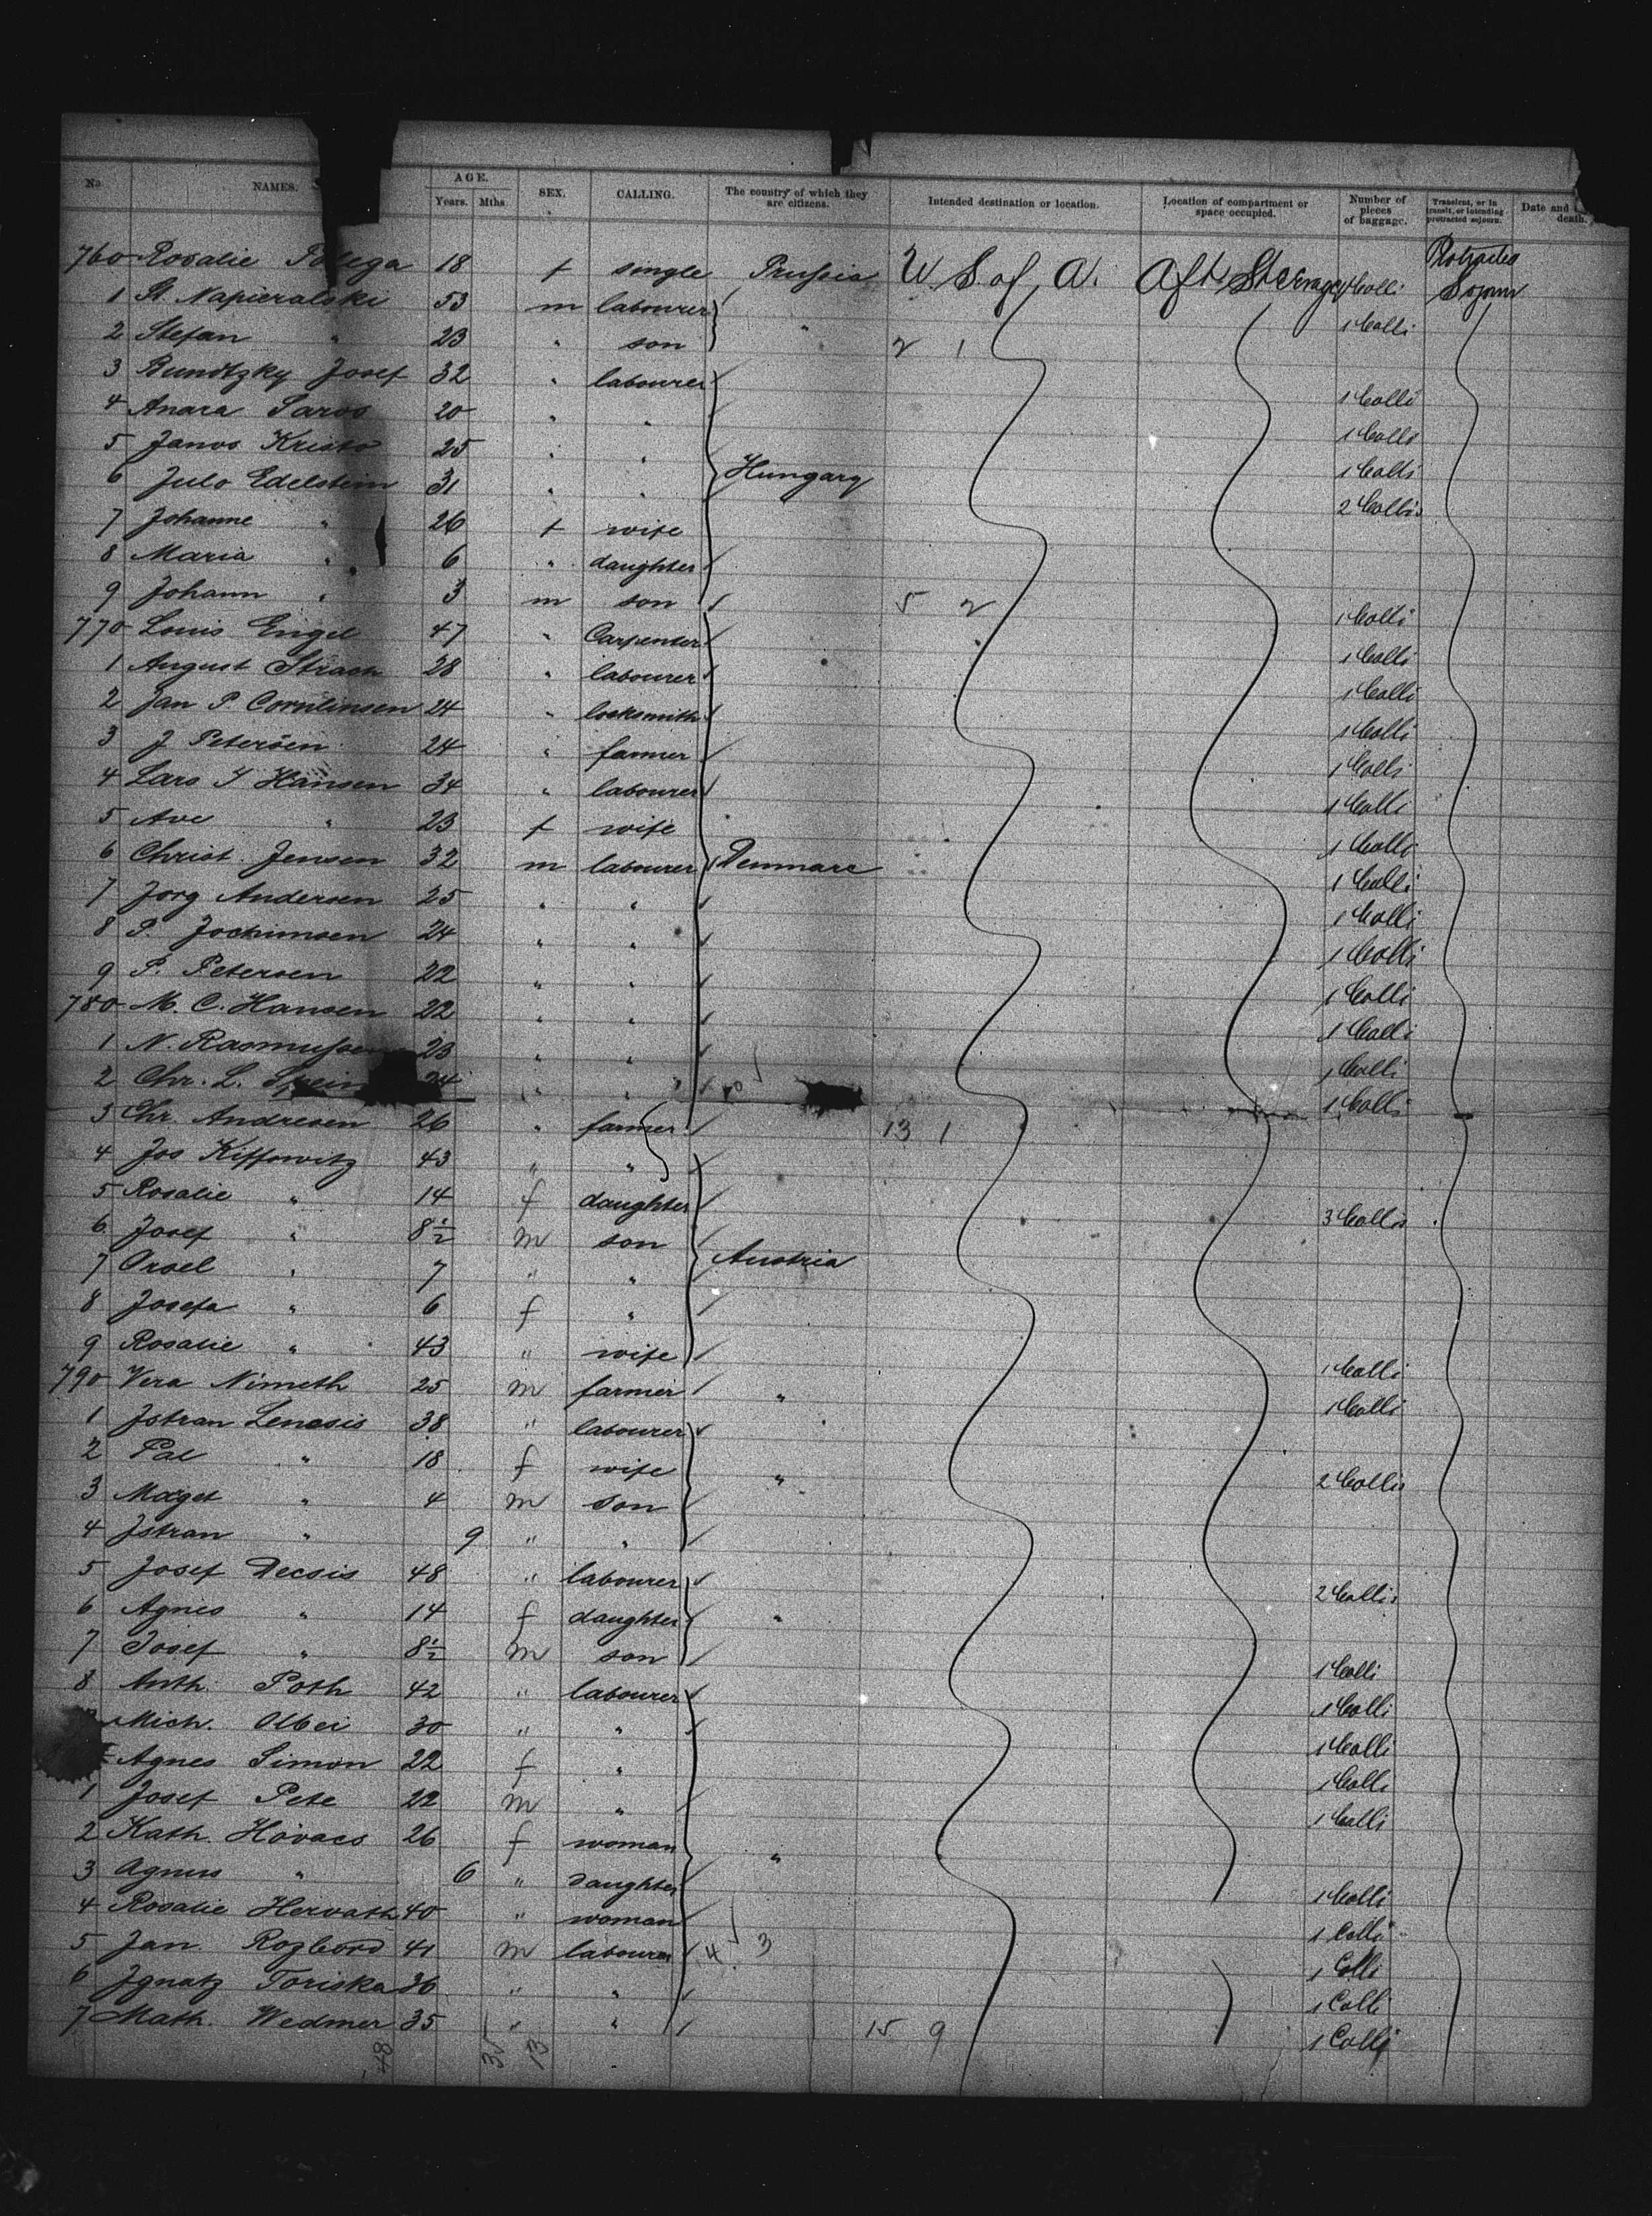 No. NAMES. AGE. Years. Mths SEX. CALLING. The country of which they are citizens. Intended destination or location. Location of compartment or space occupied. Number of pieces of baggage. Transient, or in transit, or intending protracted sojourn. Date and death.
760 Rosalie 18 f single Prussia U. S. of A. Aft Steerage 1 Colli Protracted Sojourn
1 St Napieralski 53 m labourer 1 Colli
2 Stefan " 23 " son " 2 1
3 Bunditzky Josef 32 " labourer 1 Colli
4 Anara Saros 20 " " 1 Colli
5 Janos Kristo 25 " " Hungary 1 Colli
6 Julo Edelstein 31 " " 2 Collis
7 Johanne " 26 f wife
8 Maria " 6 " daughter
9 Johann " 3 m son 5 2
770 Louis Engel 47 " Carpenter 1 Colli
1 August Strach 28 " labourer 1 Colli
2 Jan P. Cornlinsen 24 " locksmith 1 Colli
3 J. Petersen 24 " farmer 1 Colli
4 Lars J Hansen 34 " labourer 1 Colli
5 Ave " 23 f wife 1 Colli
6 Christ. Jensen 32 m labourer Denmarc 1 Colli
7 Jorg Andersen 25 " " 1 Colli
8 P. Jochimsen 24 " " 1 Colli
9 P. Petersen 22 " " 1 Colli
780 M. C. Hansen 22 " " 1 Colli
1 N. Rasmussen 23 " " 1 Colli
2 Chr. L. 24 " " 1 Colli
3 Chr. Andresen 26 " farmer 13 1 1 Colli
4 Jos Kiffowitz 43 " "
5 Rosalie " 14 f daughter
6 Josef " 8½ m son 3 Collis
7 Orsel " 7 " " Austria
8 Josefa " 6 f "
9 Rosalie " 43 " wife
790 Vera Nimeth 25 m farmer " 1 Colli
1 Jstran Lenosis 38 " labourer 1 Colli
2 Pal " 18 f wife "
3 Maget " 4 m son 2 Collis
4 Jstran " 9 " "
5 Josef Decsis 48 " labourer
6 Agnes " 14 f daughter " 2 Collis
7 Josef " 8½ m son
8 Anth. Poth 42 " labourer 1 Colli
Mich. Olbei 30 " " 1 Colli
Agnes Simon 22 f " 1 Colli
1 Josef Pete 22 m " 1 Colli
2 Kath. Hovacs 26 f woman " 1 Colli
3 Agnes " 6 " daughter
4 Rosalie Hervath 40 " woman 1 Colli
5 Jan Rozbord 41 m labourer 4 3 1 Colli
6 Jgnatz Toriska 26 " " 1 Colli
7 Math. Wedmer 35 " " 15 9 1 Colli
1 Colli
48 35 13